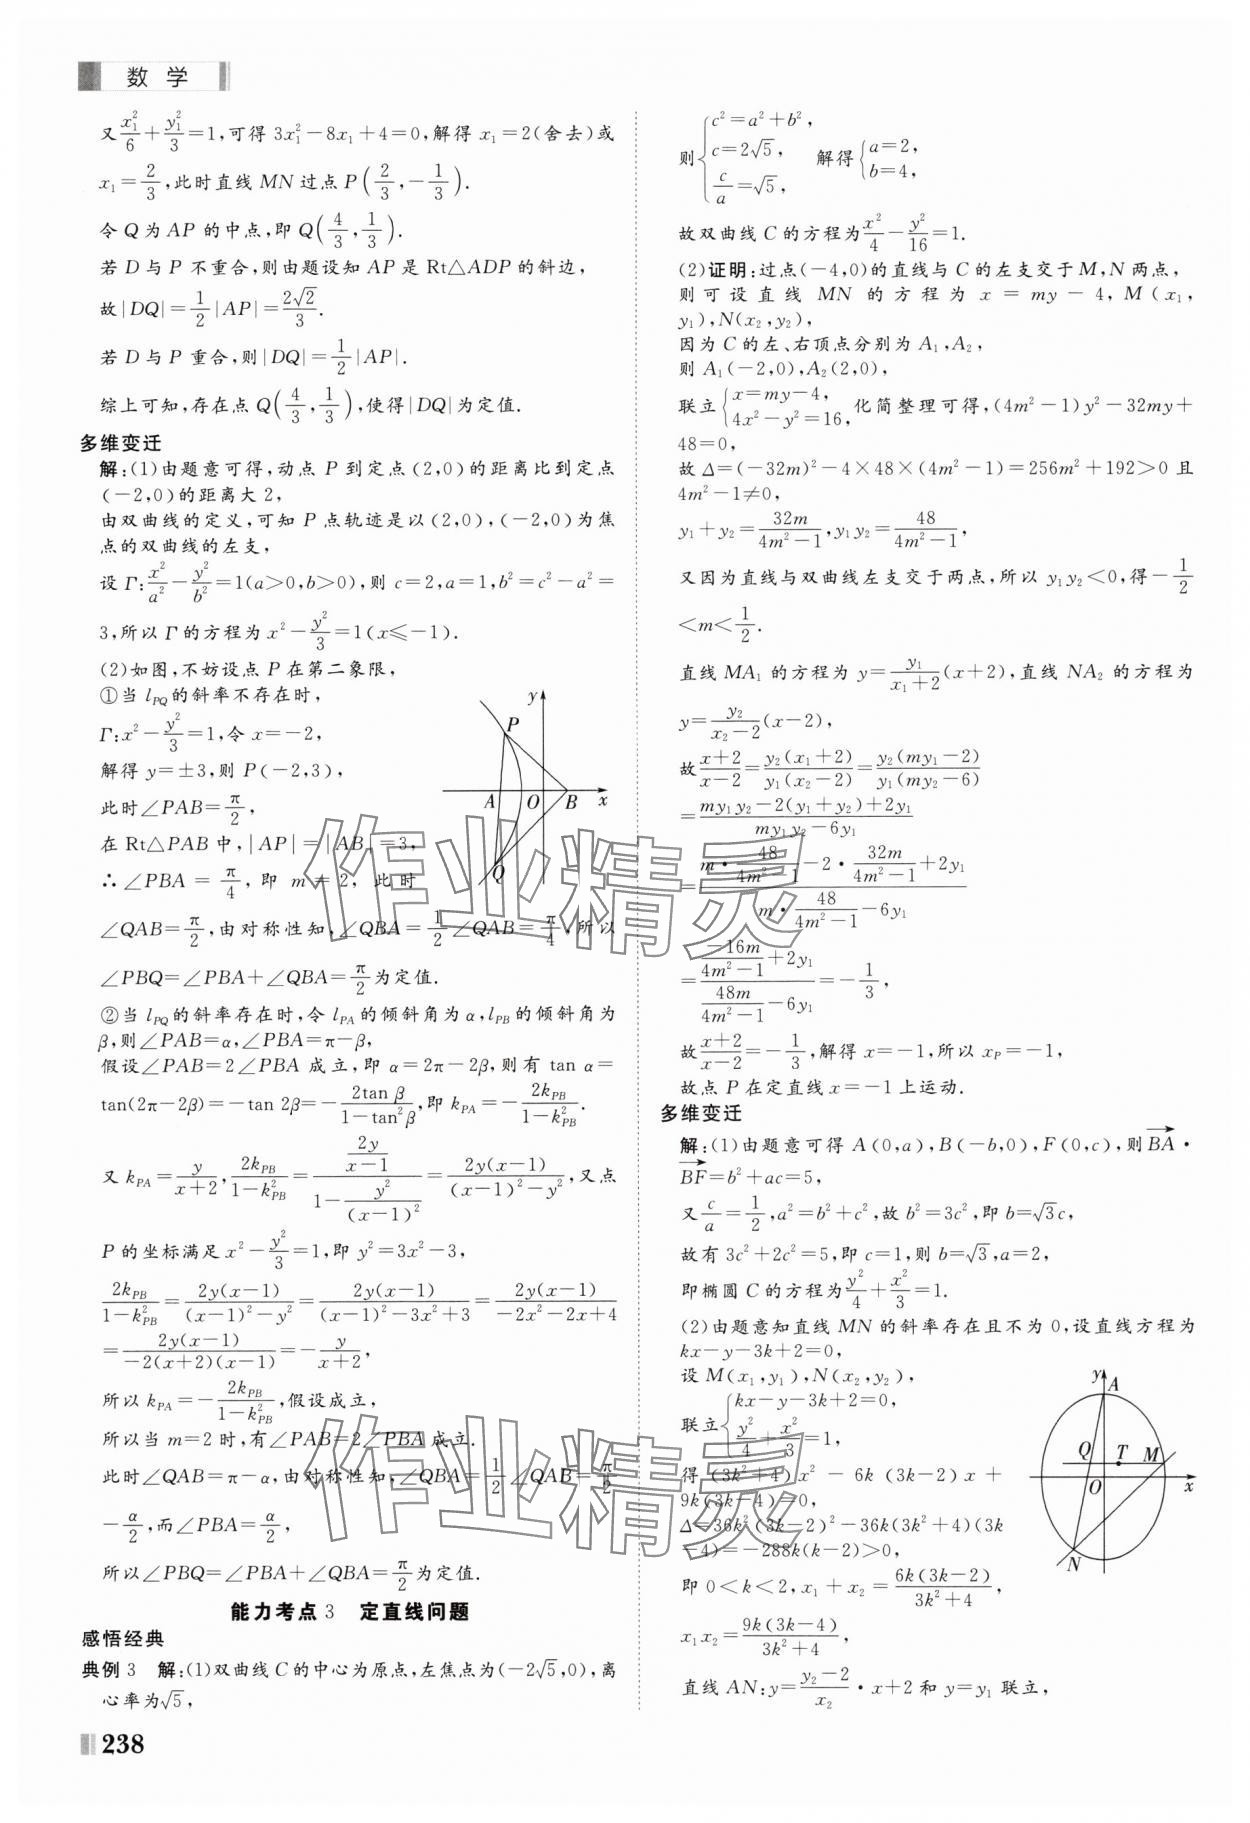 数 学
又x₁²/6+y₁²/3=1,可得 3x₁²-8x₁+4=0,解得 x₁=2(舍去)或
x₁=2/3,此时直线 MN 过点 P(2/3,-1/3).
令 Q 为 AP 的中点,即 Q(4/3,1/3).
若 D 与 P 不重合,则由题设知 AP 是 Rt△ADP 的斜边,
故|DQ|=1/2|AP|=2√2/3.
若 D 与 P 重合,则|DQ|=1/2|AP|.
综上可知,存在点 Q(4/3,1/3),使得|DQ|为定值.
多维变迁
解:(1)由题意可得,动点 P 到定点(2,0)的距离比到定点
(-2,0)的距离大 2,
由双曲线的定义,可知 P 点轨迹是以(2,0),(-2,0)为焦
点的双曲线的左支,
设 Γ:x²/a²-y²/b²=1(a>0,b>0),则 c=2,a=1,b²=c²-a²=
3,所以 Γ 的方程为 x²-y²/3=1(x≤-1).
(2)如图,不妨设点 P 在第二象限,
①当 l_PQ 的斜率不存在时,
Γ:x²-y²/3=1,令 x=-2,
解得 y=±3,则 P(-2,3),
此时∠PAB=π/2,
在 Rt△PAB 中,|AP|=|AB|=3,
∴∠PBA=π/4,即 m=2,此时
∠QAB=π/2,由对称性知,∠QBA=1/2∠QAB=π/4,所以
∠PBQ=∠PBA+∠QBA=π/2为定值.
y P A O B x Q
②当 l_PQ 的斜率存在时,令 l_PA 的倾斜角为 α,l_PB 的倾斜角为
β,则∠PAB=α,∠PBA=π-β,
假设∠PAB=2∠PBA 成立,即 α=2π-2β,则有 tan α=
tan(2π-2β)=-tan 2β=-2tan β/(1-tan²β),即 k_PA=-2k_PB/(1-k²_PB).
又 k_PA=y/(x+2),2k_PB/(1-k²_PB)=(2y/(x-1))/(1-y²/(x-1)²)=2y(x-1)/((x-1)²-y²),又点
P 的坐标满足 x²-y²/3=1,即 y²=3x²-3,
2k_PB/(1-k²_PB)=2y(x-1)/((x-1)²-y²)=2y(x-1)/((x-1)²-3x²+3)=2y(x-1)/(-2x²-2x+4)
=2y(x-1)/(-2(x+2)(x-1))=-y/(x+2),
所以 k_PA=-2k_PB/(1-k²_PB),假设成立,
所以当 m=2 时,有∠PAB=2∠PBA 成立.
此时∠QAB=π-α,由对称性知,∠QBA=1/2∠QAB=π/2
-α/2,而∠PBA=α/2,
所以∠PBQ=∠PBA+∠QBA=π/2为定值.
能力考点 3 定直线问题
感悟经典
典例 3 解:(1)双曲线 C 的中心为原点,左焦点为(-2√5,0),离
心率为√5,
238
则{c²=a²+b², c=2√5, c/a=√5, 解得{a=2, b=4,
故双曲线 C 的方程为x²/4-y²/16=1.
(2)证明:过点(-4,0)的直线与 C 的左支交于 M,N 两点,
则可设直线 MN 的方程为 x=my-4,M(x₁,
y₁),N(x₂,y₂),
因为 C 的左、右顶点分别为 A₁,A₂,
则 A₁(-2,0),A₂(2,0),
联立{x=my-4, 4x²-y²=16, 化简整理可得,(4m²-1)y²-32my+
48=0,
故 Δ=(-32m)²-4×48×(4m²-1)=256m²+192>0 且
4m²-1≠0,
y₁+y₂=32m/(4m²-1),y₁y₂=48/(4m²-1),
又因为直线与双曲线左支交于两点,所以 y₁y₂<0,得-1/2
<m<1/2.
直线 MA₁ 的方程为 y=y₁/(x₁+2)(x+2),直线 NA₂ 的方程为
y=y₂/(x₂-2)(x-2),
故(x+2)/(x-2)=y₂(x₁+2)/(y₁(x₂-2))=y₂(my₁-2)/(y₁(my₂-6))
=(my₁y₂-2(y₁+y₂)+2y₁)/(my₁y₂-6y₁)
=(m·48/(4m²-1)-2·32m/(4m²-1)+2y₁)/(m·48/(4m²-1)-6y₁)
=(-16m/(4m²-1)+2y₁)/(48m/(4m²-1)-6y₁)=-1/3,
故(x+2)/(x-2)=-1/3,解得 x=-1,所以 x_P=-1,
故点 P 在定直线 x=-1 上运动.
多维变迁
解:(1)由题意可得 A(0,a),B(-b,0),F(0,c),则BA→·
BF→=b²+ac=5,
又c/a=1/2,a²=b²+c²,故 b²=3c²,即 b=√3c,
故有 3c²+2c²=5,即 c=1,则 b=√3,a=2,
即椭圆 C 的方程为y²/4+x²/3=1.
(2)由题意知直线 MN 的斜率存在且不为 0,设直线方程为
kx-y-3k+2=0,
设 M(x₁,y₁),N(x₂,y₂),
联立{kx-y-3k+2=0, y²/4+x²/3=1,
得(3k²+4)x²-6k(3k-2)x+
9k(3k-4)=0,
Δ=36k²(3k-2)²-36k(3k²+4)(3k
-4)=-288k(k-2)>0,
即 0<k<2,x₁+x₂=6k(3k-2)/(3k²+4),
x₁x₂=9k(3k-4)/(3k²+4),
y A Q T M O x N
直线 AN:y=(y₂-2)/x₂·x+2 和 y=y₁ 联立,
作业精灵
作业精灵